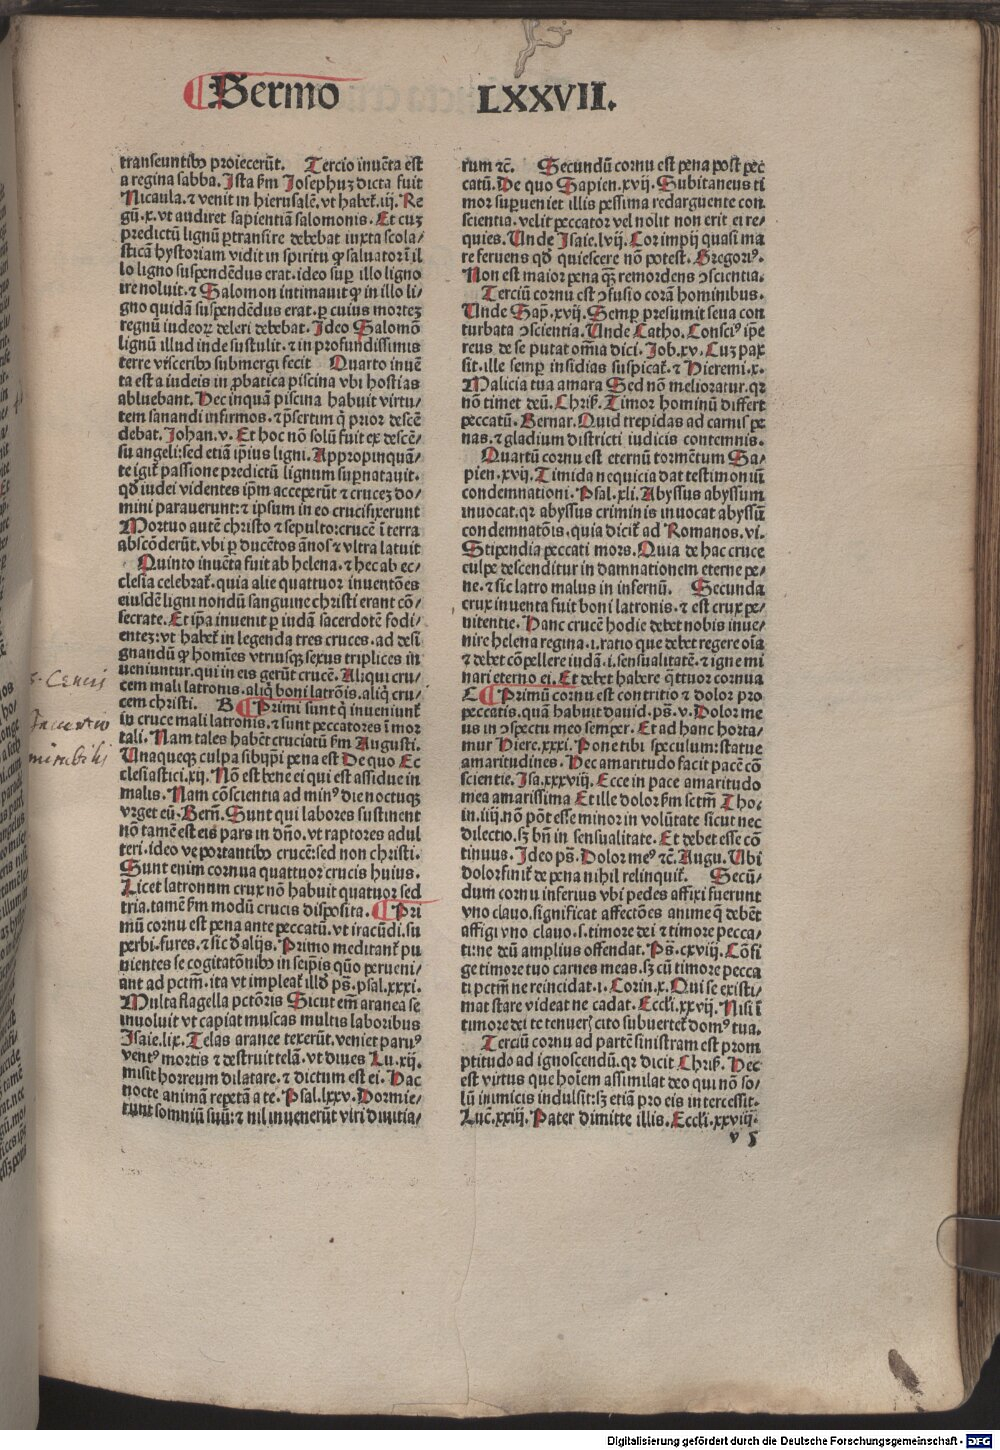 Sermo LXXVII.
transeuntibꝰ proiecerūt. Tercio inuēta est
a regina sabba. Ista ẜm Josephuꝫ dicta fuit
Nicaula. ⁊ venit in hierusalē. vt habet̉. iij. Re
gū. x. vt audiret sapientiā salomonis. Et cuꝫ
predictū lignū ꝑtransire debebat iuxta scola/
sticā hystoriam vidit in spiritu ꝙ saluator ī il
lo ligno suspendēdus erat. ideo suꝑ illo ligno
ire noluit. ⁊ Salomon intimauit ꝙ in illo li/
gno quidā suspendēdus erat. ꝑ cuius morteꝫ
regnū iudeoꝝ deleri debebat. Ideo Salomō
lignū illud inde sustulit. ⁊ in profundissimis
terre visceribꝰ submergi fecit Quarto inuē
ta est a iudeis in ꝓbatica piscina vbi hostias
abluebant. Hec inquā piscina habuit virtu/
tem sanandi infirmos. ⁊ p̄sertim q̇ prior descē
debat. Johan. v. Et hoc nō solū fuit ex descē/
su angeli: sed etiā ip̄ius ligni. Appropinquā/
te igit̉ passione predictū lignum suꝑnatauit.
qd̓ iudei videntes ip̄m acceperūt ⁊ cruceꝫ do/
mini parauerunt: ⁊ ipsum in eo crucifixerunt
Mortuo autē christo ⁊ sepulto: crucē ī terra
abscōderūt. vbi ꝑ ducētos ānos ⁊ vltra latuit
Quinto inuēta fuit ab helena. ⁊ hec ab ec/
clesia celebrat̉. quia alie quattuor inuentōes
eiusdē ligni nondū sanguine christi erant cō/
secrate. Et ip̄a inuenit ꝑ iudā sacerdotē fodi/
enteꝫ: vt habet̉ in legenda tres cruces. ad desi
gnandū ꝙ homīes vtriusqꝫ sexus triplices in
ueniuntur. qui in eis gerūt crucē. Aliqui cru/
cem mali latronis. aliq̇ boni latrōis. aliq̇ cru/
cem christi. B Primi sunt q̇ inueniunt̉
in cruce mali latronis. ⁊ sunt peccatores ī mor
tali. Nam tales habēt cruciatū ẜm Augusti.
Unaqueqꝫ culpa sibijp̄i pena est De quo Ec
clesiastici. xij. Nō est bene ei qui est assidue in
malis. Nam cōscientia ad minꝰ die noctuqꝫ
vrget eū. Berñ. Sunt qui labores sustinent
nō tamē est eis pars in dn̄o. vt raptores adul
teri. ideo ve portantibꝰ crucē: sed non christi.
Sunt enim cornua quattuor crucis huius.
Licet latronum crux nō habuit quatuor sed
tria. tamē ẜm modū crucis disposita. Pri
mū cornu est pena ante peccatū. vt iracūdi. su
perbi. fures. ⁊ sic d̓ alijs. Primo meditant̉ pu
nientes se cogitatōnibꝰ in seip̄is quō perueni/
ant ad pctm̄. ita vt impleat̉ illd̓ ps̄. psal. xxxi.
Multa flagella pctōris Sicut em̄ aranea se
inuoluit vt capiat muscas multis laboribus
Isaie. lix. Telas aranee texerūt. veniet paruꝰ
ventꝰ mortis ⁊ destruit telā. vt diues Lu. xij.
misit horreum dilatare. ⁊ dictum est ei. Hac
nocte animā repetā a te. Psal. lxxv. Dormie/
runt somniū suū: ⁊ nil inuenerūt viri diuitia/
rum ꝛc̄. Secundū cornu est pena post pec
catū. De quo Sapien. xvij. Subitaneus ti
mor superueniet illis pessima redarguente con
scientia. velit peccator vel nolit non erit ei re/
quies. Unde Isaie. lvij. Cor impij quasi ma
re feruens qd̓ quiescere nō potest. Gregoriꝰ.
Non est maior pena qꝫ remordens ↄscientia.
Terciū cornu est ↄfusio corā hominibus.
Unde Sap. xvij. Semꝑ presumit seua con
turbata ↄscientia. Unde Catho. Consciꝰ ip̄e
reus de se putat om̄ia dici. Job. xv. Cuꝫ pax
sit. ille semꝑ insidias suspicat̉. ⁊ Hieremi. x.
Malicia tua amara Sed nō melioratur. qꝛ
nō timet deū. Chriß. Timor hominū differt
peccatū. Bernar. Quid trepidas ad carnis pe
nas. ⁊ gladium districti iudicis contemnis.
Quartū cornu est eternū tormētum Sa/
pien. xvij. Timida nequicia dat testimoniū
condemnationi. Psal. xli. Abyssus abyssum
inuocat. qꝛ abyssus criminis inuocat abyssū
condemnatōis. quia dicit̉ ad Romanos. vi.
Stipendia peccati mors. Quia de hac cruce
culpe descenditur in damnationem eterne pe/
ne. ⁊ sic latro malus in infernū. Secunda
crux inuenta fuit boni latronis. ⁊ est crux pe/
nitentie. Hanc crucē hodie debet nobis inue/
nire helena regina. i. ratio que debet regere oīa
⁊ debet cōpellere iudā. i. sensualitatē. ⁊ igne mi
nari eterno ei. Et debet habere q̈ttuor cornua
C Primū cornu est contritio ⁊ dolor pro
peccatis. quā habuit dauid. ps̄. v. Dolor me
us in ↄspectu meo semper. Et ad hanc horta/
mur Hiere. xxxi. Pone tibi speculum: statue
amaritudines. Hec amaritudo facit pacē cō
scientie. Isa. xxxviij. Ecce in pace amaritudo
mea amarissima Et ille dolor ẜm sctm̄ Tho/
in. iiij. nō pōt esse minor in volūtate sicut nec
dilectio. sꝫ bn̄ in sensualitate. Et debet esse cō
tinuus. Ideo ps̄. Dolor meꝰ ꝛc̄. Augu. Ubi
dolor finit̉ de pena nihil relinquit̉. Secū/
dum cornu inferius vbi pedes affixi fuerunt
vno clauo. significat affectōes anime q̄ debēt
affigi vno clauo. s. timore dei ⁊ timore pecca/
ti: ne deū amplius offendat. Ps̄. cxviij. Cōfi
ge timore tuo carnes meas. sꝫ cū timore pecca
ti pctm̄ ne reincidat. i. Corin. x. Qui se existi/
mat stare videat ne cadat. Eccłi. xxvij. Nisi ī
timore dei te tenuerꝭ cito subuertet̉ domꝰ tua.
Terciū cornu ad partē sinistram est prom
ptitudo ad ignoscendū. qꝛ dicit Chriß. Hec
est virtus que hoīem assimilat deo qui nō so/
lū inimicis indulsit: sꝫ etiā pro eis intercessit.
Luc̄. xxiij. Pater dimitte illis. Eccłi. xxviij.
v 5
Digitalisierung gefördert durch die Deutsche Forschungsgemeinschaft - DFG